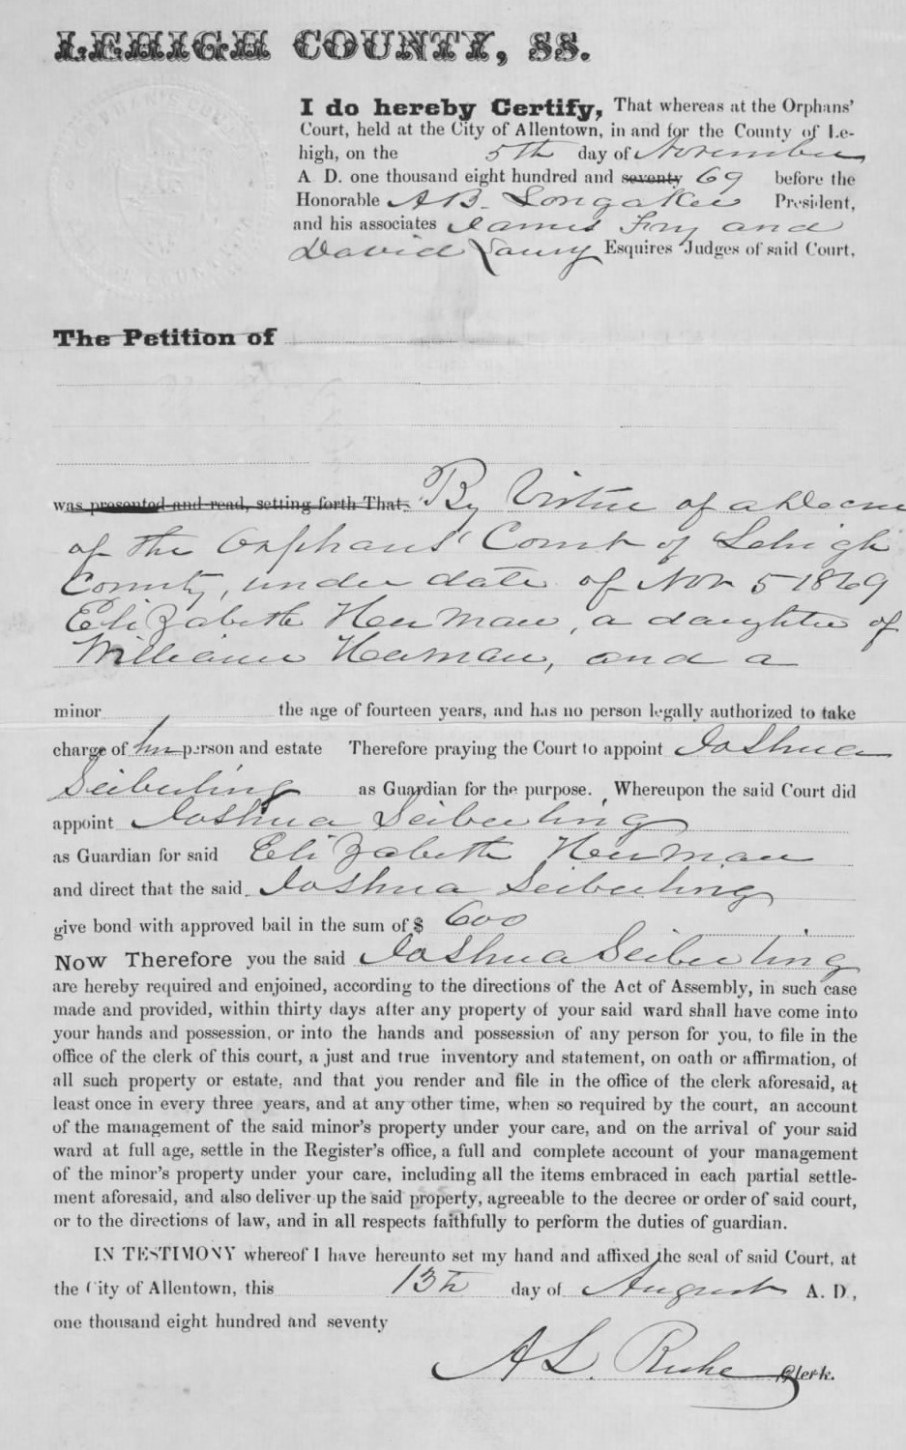 LEHIGH COUNTY, SS.
I do hereby Certify, That whereas at the Orphans'
Court, held at the City of Allentown, in and for the County of Le-
high, on the 5th day of November
A D. one thousand eight hundred and seventy 69 before the
Honorable A.B. Longaker President,
and his associates James Fry and
David Laury Esquires Judges of said Court,
The Petition of
was presented and read, setting forth That. By Virtue of a Decree
of the Orphans' Court of Lehigh
County, under date of Nov 5 1869
Elizabeth Herman, a daughter of
William Herman, and a
minor the age of fourteen years, and has no person legally authorized to take
charge of her person and estate Therefore praying the Court to appoint Joshua
Seiberling as Guardian for the purpose. Whereupon the said Court did
appoint Joshua Seiberling
as Guardian for said Elizabeth Herman
and direct that the said Joshua Seiberling
give bond with approved bail in the sum of $ 600
Now Therefore you the said Joshua Seiberling
are hereby required and enjoined, according to the directions of the Act of Assembly, in such case
made and provided, within thirty days after any property of your said ward shall have come into
your hands and possession, or into the hands and possession of any person for you, to file in the
office of the clerk of this court, a just and true inventory and statement, on oath or affirmation, of
all such property or estate, and that you render and file in the office of the clerk aforesaid, at
least once in every three years, and at any other time, when so required by the court, an account
of the management of the said minor's property under your care, and on the arrival of your said
ward at full age, settle in the Register's office, a full and complete account of your management
of the minor's property under your care, including all the items embraced in each partial settle-
ment aforesaid, and also deliver up the said property, agreeable to the decree or order of said court,
or to the directions of law, and in all respects faithfully to perform the duties of guardian.
IN TESTIMONY whereof I have hereunto set my hand and affixed the seal of said Court, at
the City of Allentown, this 13th day of August A. D,
one thousand eight hundred and seventy
A L. Ruhe Clerk.